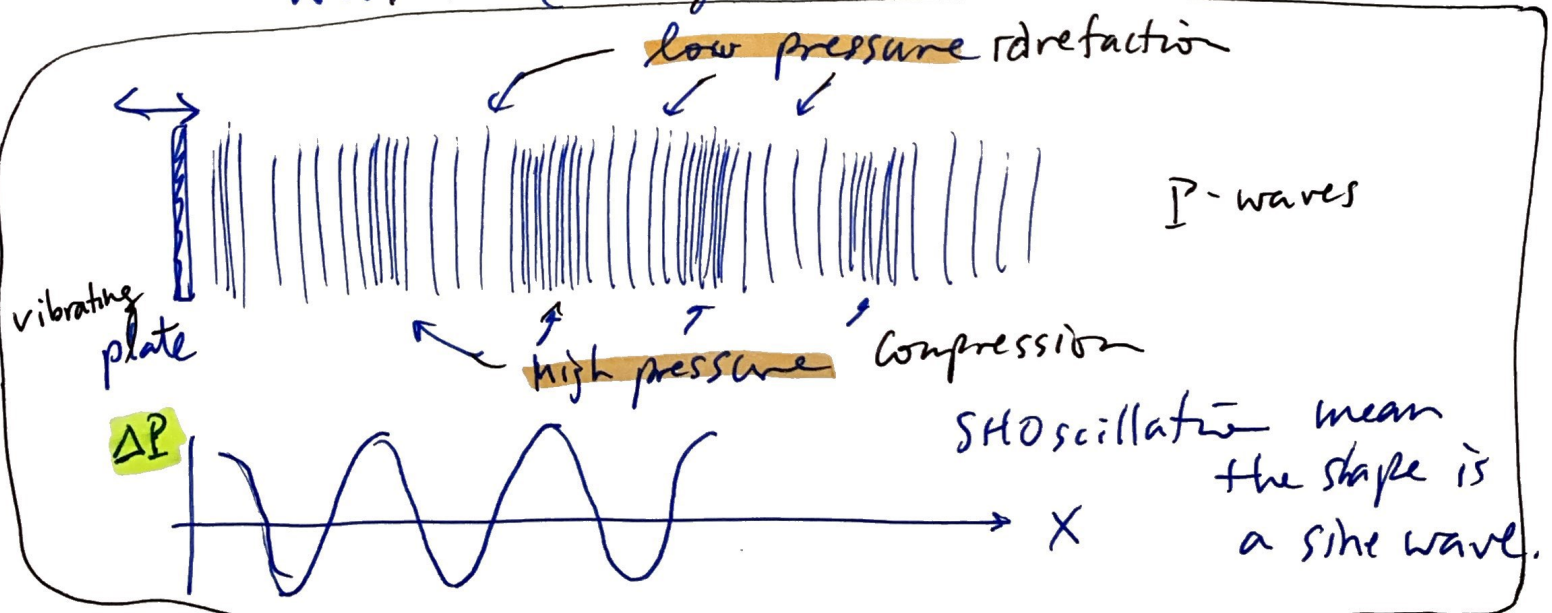 low pressure rarefaction
P-waves
vibrating
plate
high pressure compression
ΔP
SHOscillation mean
the shape is
a sine wave.
X